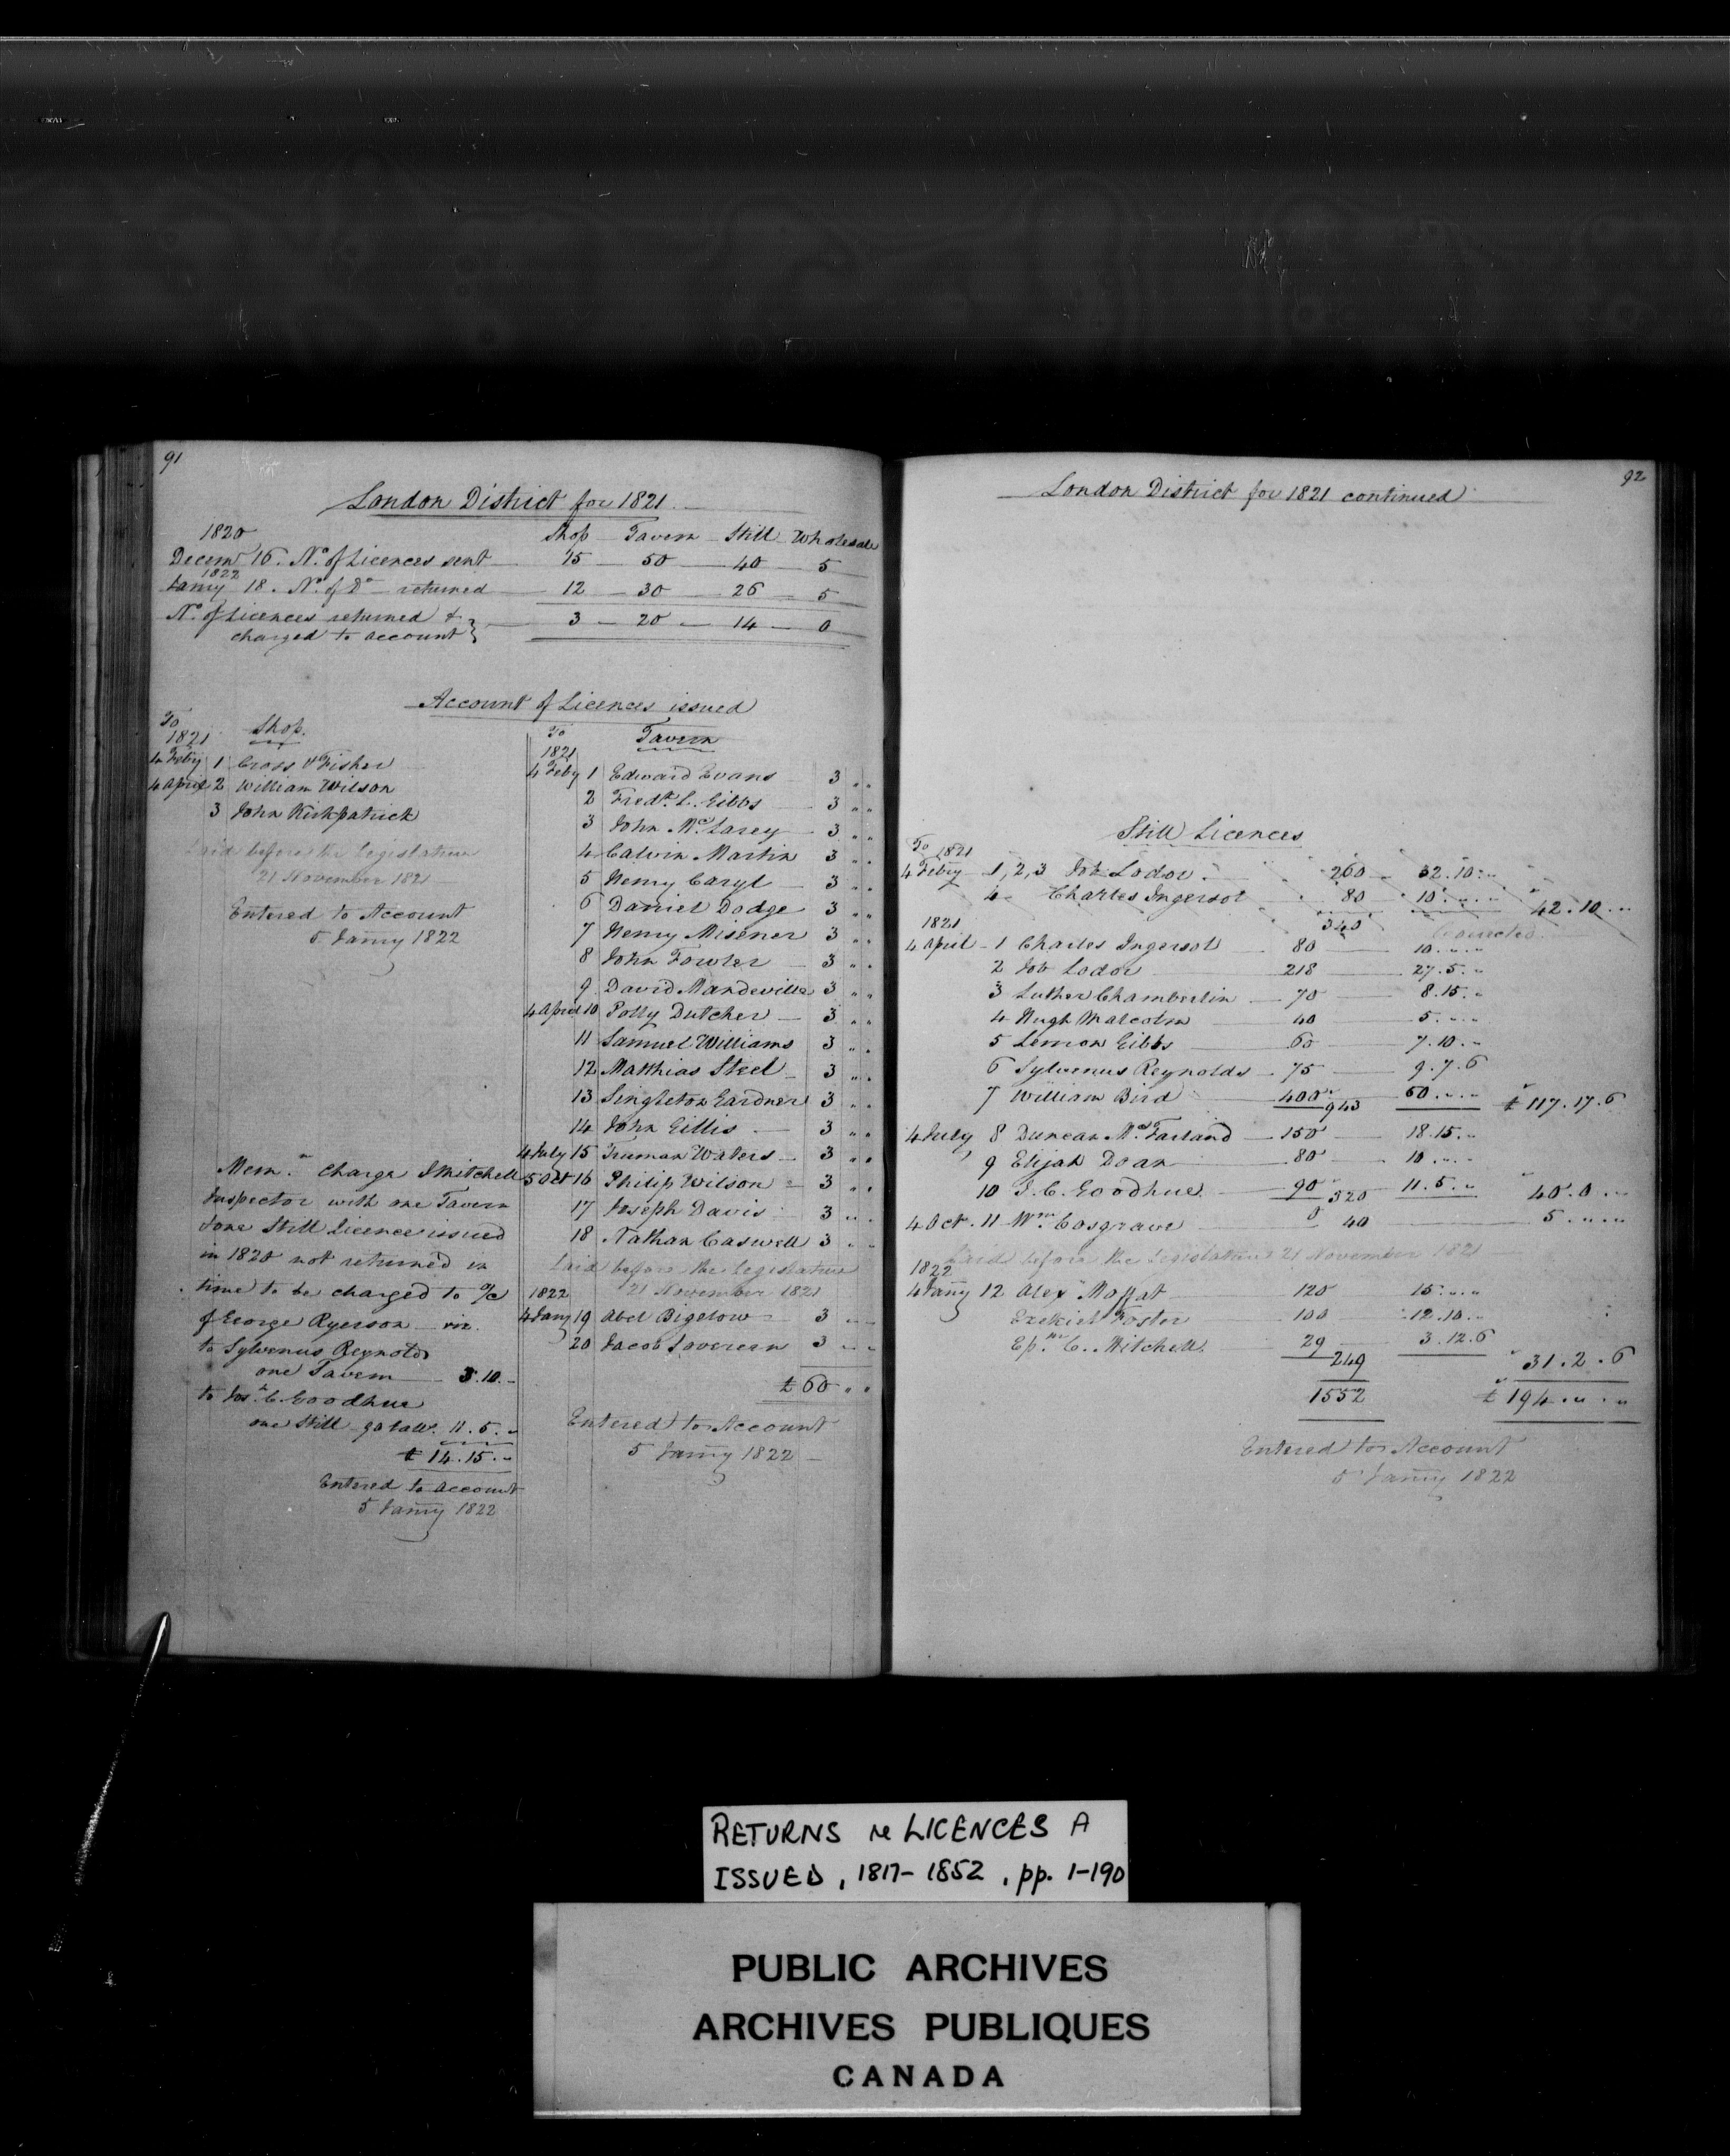 91
London District for 1821
1820 Shop Tavern Still Wholesale
Decemr 16. No. of Licences sent 15 50 40 5
1822
Jany 18. No. of Do returned 12 30 26 5
No. of Licences returned &
charged to account } 3 20 14 0
Account of Licences issued
To
1821 Shop.
4 Feby 1 Cross & Fisher
4 April 2 William Wilson
3 John Kirkpatrick
Laid before the Legislature
21 November 1821
Entered to Account
5 Jany 1822
Mem. Charge J Mitchell
Inspector with one Tavern
& one Still Licence issued
in 1820 not returned in
time to be charged to a/c
of George Ryerson viz.
to Sylvenus Reynolds
one Tavern 3.10.-
to Jos. C. Goodhue
one Still 90 galls. 11.5.-
£ 14.15.-
Entered to account
5 Jany 1822
To
1821 Tavern
4 Feby 1 Edward Evans 3 " "
2 Fredk. L. Gibbs 3 " "
3 John Mc Larey 3 " "
4 Calvin Martin 3 " "
5 Henry Caryl 3 " "
6 Daniel Dodge 3 " "
7 Henry Misener 3 " "
8 John Fowler 3 " "
9 David Mandeville 3 " "
4 April 10 Polly Dutcher 3 " "
11 Samuel Williams 3 " "
12 Matthias Steel 3 " "
13 Singleton Gardner 3 " "
14 John Gillis 3 " "
4 July 15 Truman Waters 3 " "
5 Oct 16 Philip Wilson 3 " "
17 Joseph Davis 3 " "
18 Nathan Caswell 3 " "
Laid before the Legislature
21 November 1821
1822
4 Jany 19 Abel Bigelow 3 " "
20 Jacob Lovereen 3 " "
£ 60 " "
Entered to Account
5 Jany 1822
92
London District for 1821 continued
Still Licences
To 1821
4 Feby 1, 2, 3 Job Lodor 260 32.10."
4 Charles Ingersol 80 10." " 42.10."
340 Corrected
1821
4 April 1 Charles Ingersol 80 10." "
2 Job Lodor 218 27.5."
3 Luther Chamberlin 70 8.15."
4 Hugh Malcolm 40 5." "
5 Lemon Gibbs 60 7.10."
6 Sylvenus Reynolds 75 9.7.6
7 William Bird 400 943 50." " £ 117.17.6
4 July 8 Duncan McFarland 150 18.15."
9 Elijah Doan 80 10." "
10 J. C. Goodhue 90 320 11.5." 40.0."
4 Oct. 11 Wm. Cosgrave 40 5." "
Laid before the Legislature 21 November 1821
1822
4 Jany 12 Alex Moffat 120 15." "
Ezekiel Foster 100 12.10."
Epm. C. Mitchell 29 3.12.6
249 31.2.6
1552 £ 194." "
Entered to Account
5 Jany 1822
RETURNS re LICENCES A
ISSUED, 1817-1852, pp. 1-190
PUBLIC ARCHIVES
ARCHIVES PUBLIQUES
CANADA